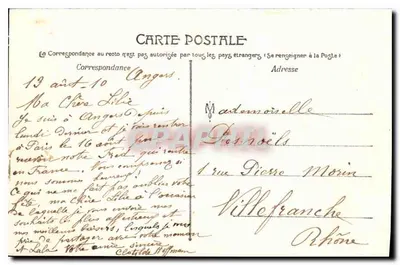 CARTE POSTALE
La Correspondance au recto n'est pas autorisée par tous les pays étrangers. (Se renseigner à la Poste)
Correspondance
Adresse
13 août-10 Angers.
Ma Chère Lilie
Je suis à Angers depuis
lundi dernier et je vais rentrer
à Paris le 16 août pour
revoir notre qui rentre
en France. Vous comprenez si
nous sommes
Ce qui ne me fait pas oublier votre
fête, ma Chère Lilie à l'occasion
de laquelle je vous envoie mes
souhaits les plus affectueux et
mes meilleurs baisers,
de partager avec votre maman
et Lala. Votre amie sincère
Clotilde
Mademoiselle
Desnoëls
1 rue Pierre Morin
Villefranche
Rhône